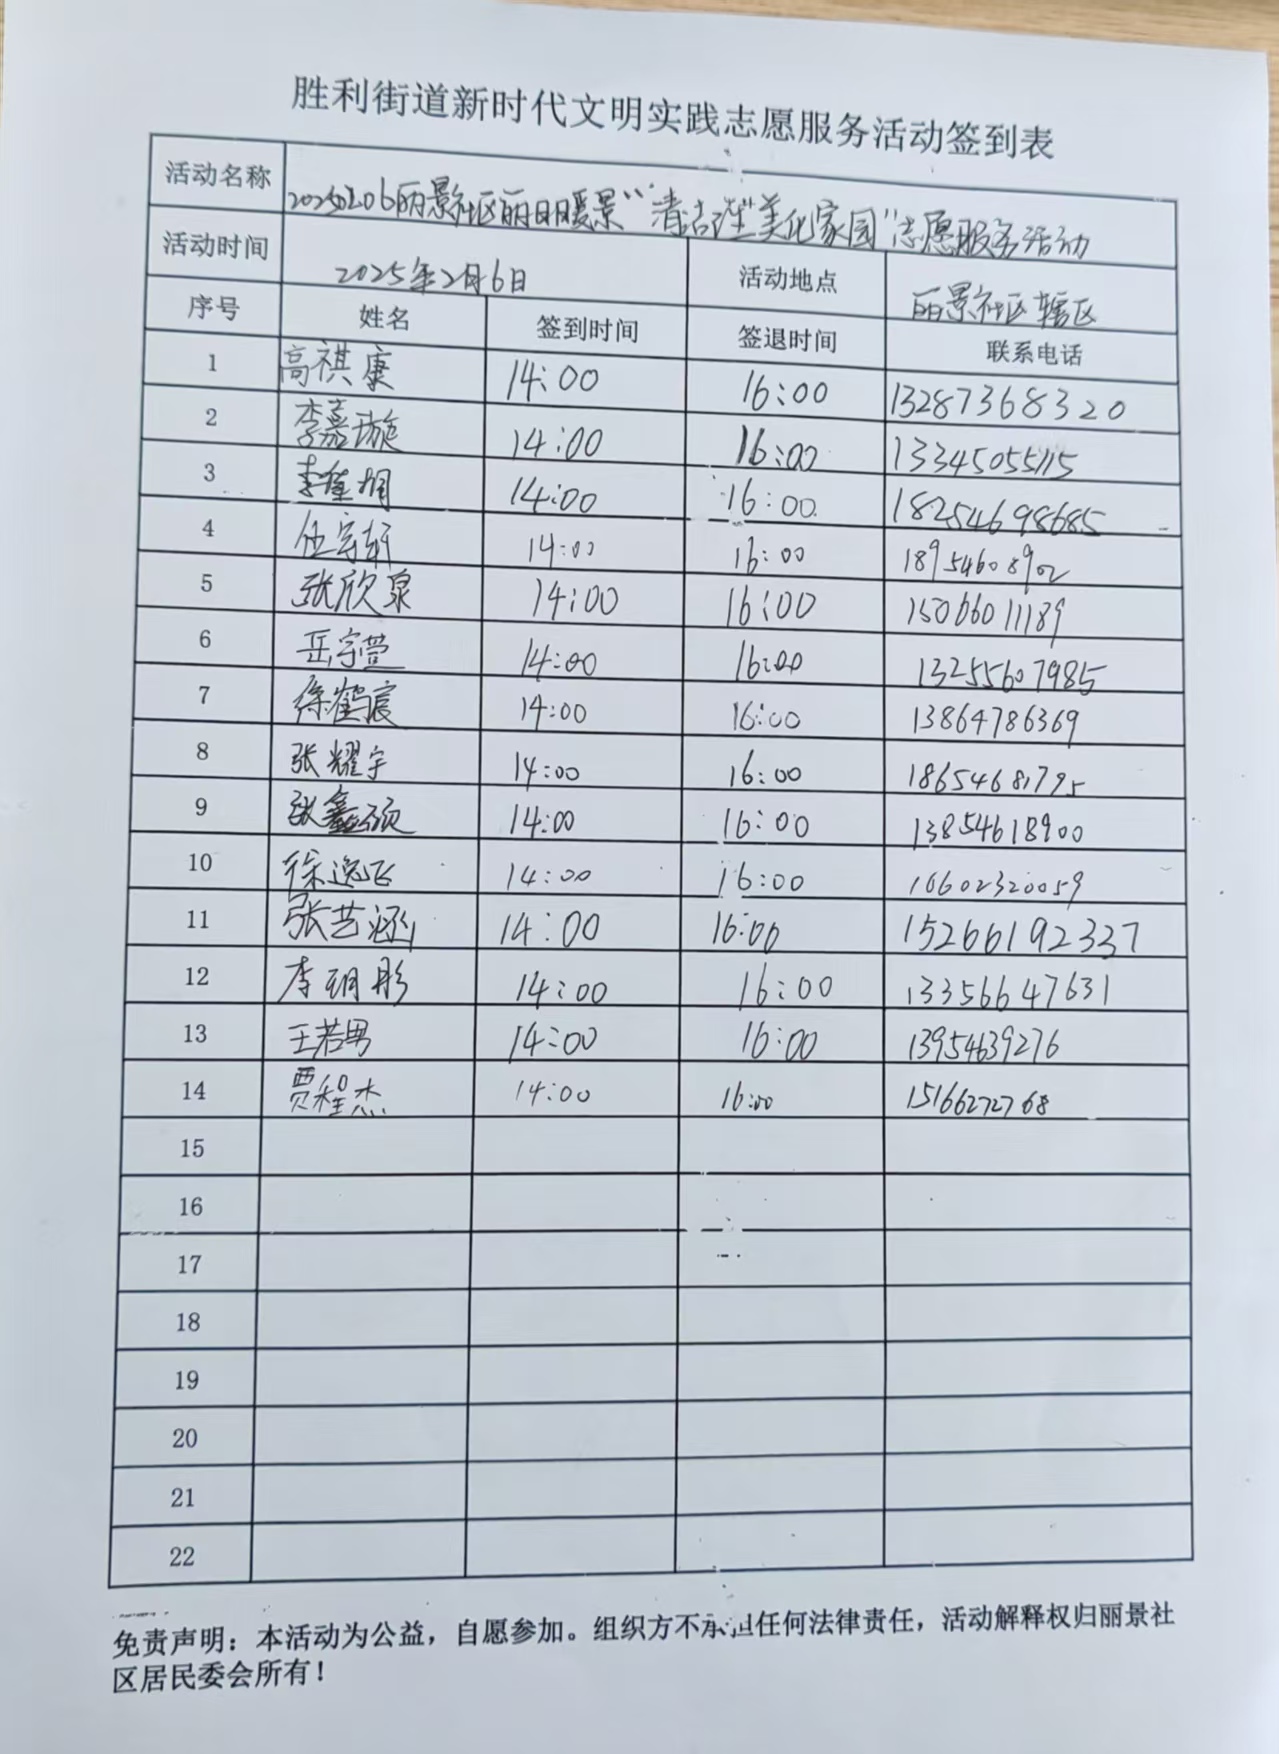 胜利街道新时代文明实践志愿服务活动签到表
活动名称 20250206丽景社区丽日暖景“清洁 美化家园”志愿服务活动
活动时间 2025年2月6日 活动地点 丽景社区辖区
序号 姓名 签到时间 签退时间 联系电话
1 高祺康 14:00 16:00 13287368320
2 李嘉璇 14:00 16:00 13345055115
3 李 14:00 16:00 18254698685
4 伍宇轩 14:00 16:00 18954608902
5 张欣泉 14:00 16:00 15066011189
6 岳宇萱 14:00 16:00 13255607985
7 徐鹤宸 14:00 16:00 13864786369
8 张耀宇 14:00 16:00 18654681795
9 张鑫硕 14:00 16:00 13854618900
10 徐逸飞 14:00 16:00 16602320059
11 张艺涵 14:00 16:00 15266192337
12 李玥彤 14:00 16:00 13356647631
13 王若男 14:00 16:00 13954639276
14 贾程杰 14:00 16:00 15166272768
15
16
17
18
19
20
21
22
免责声明：本活动为公益，自愿参加。组织方不承担任何法律责任，活动解释权归丽景社
区居民委会所有！